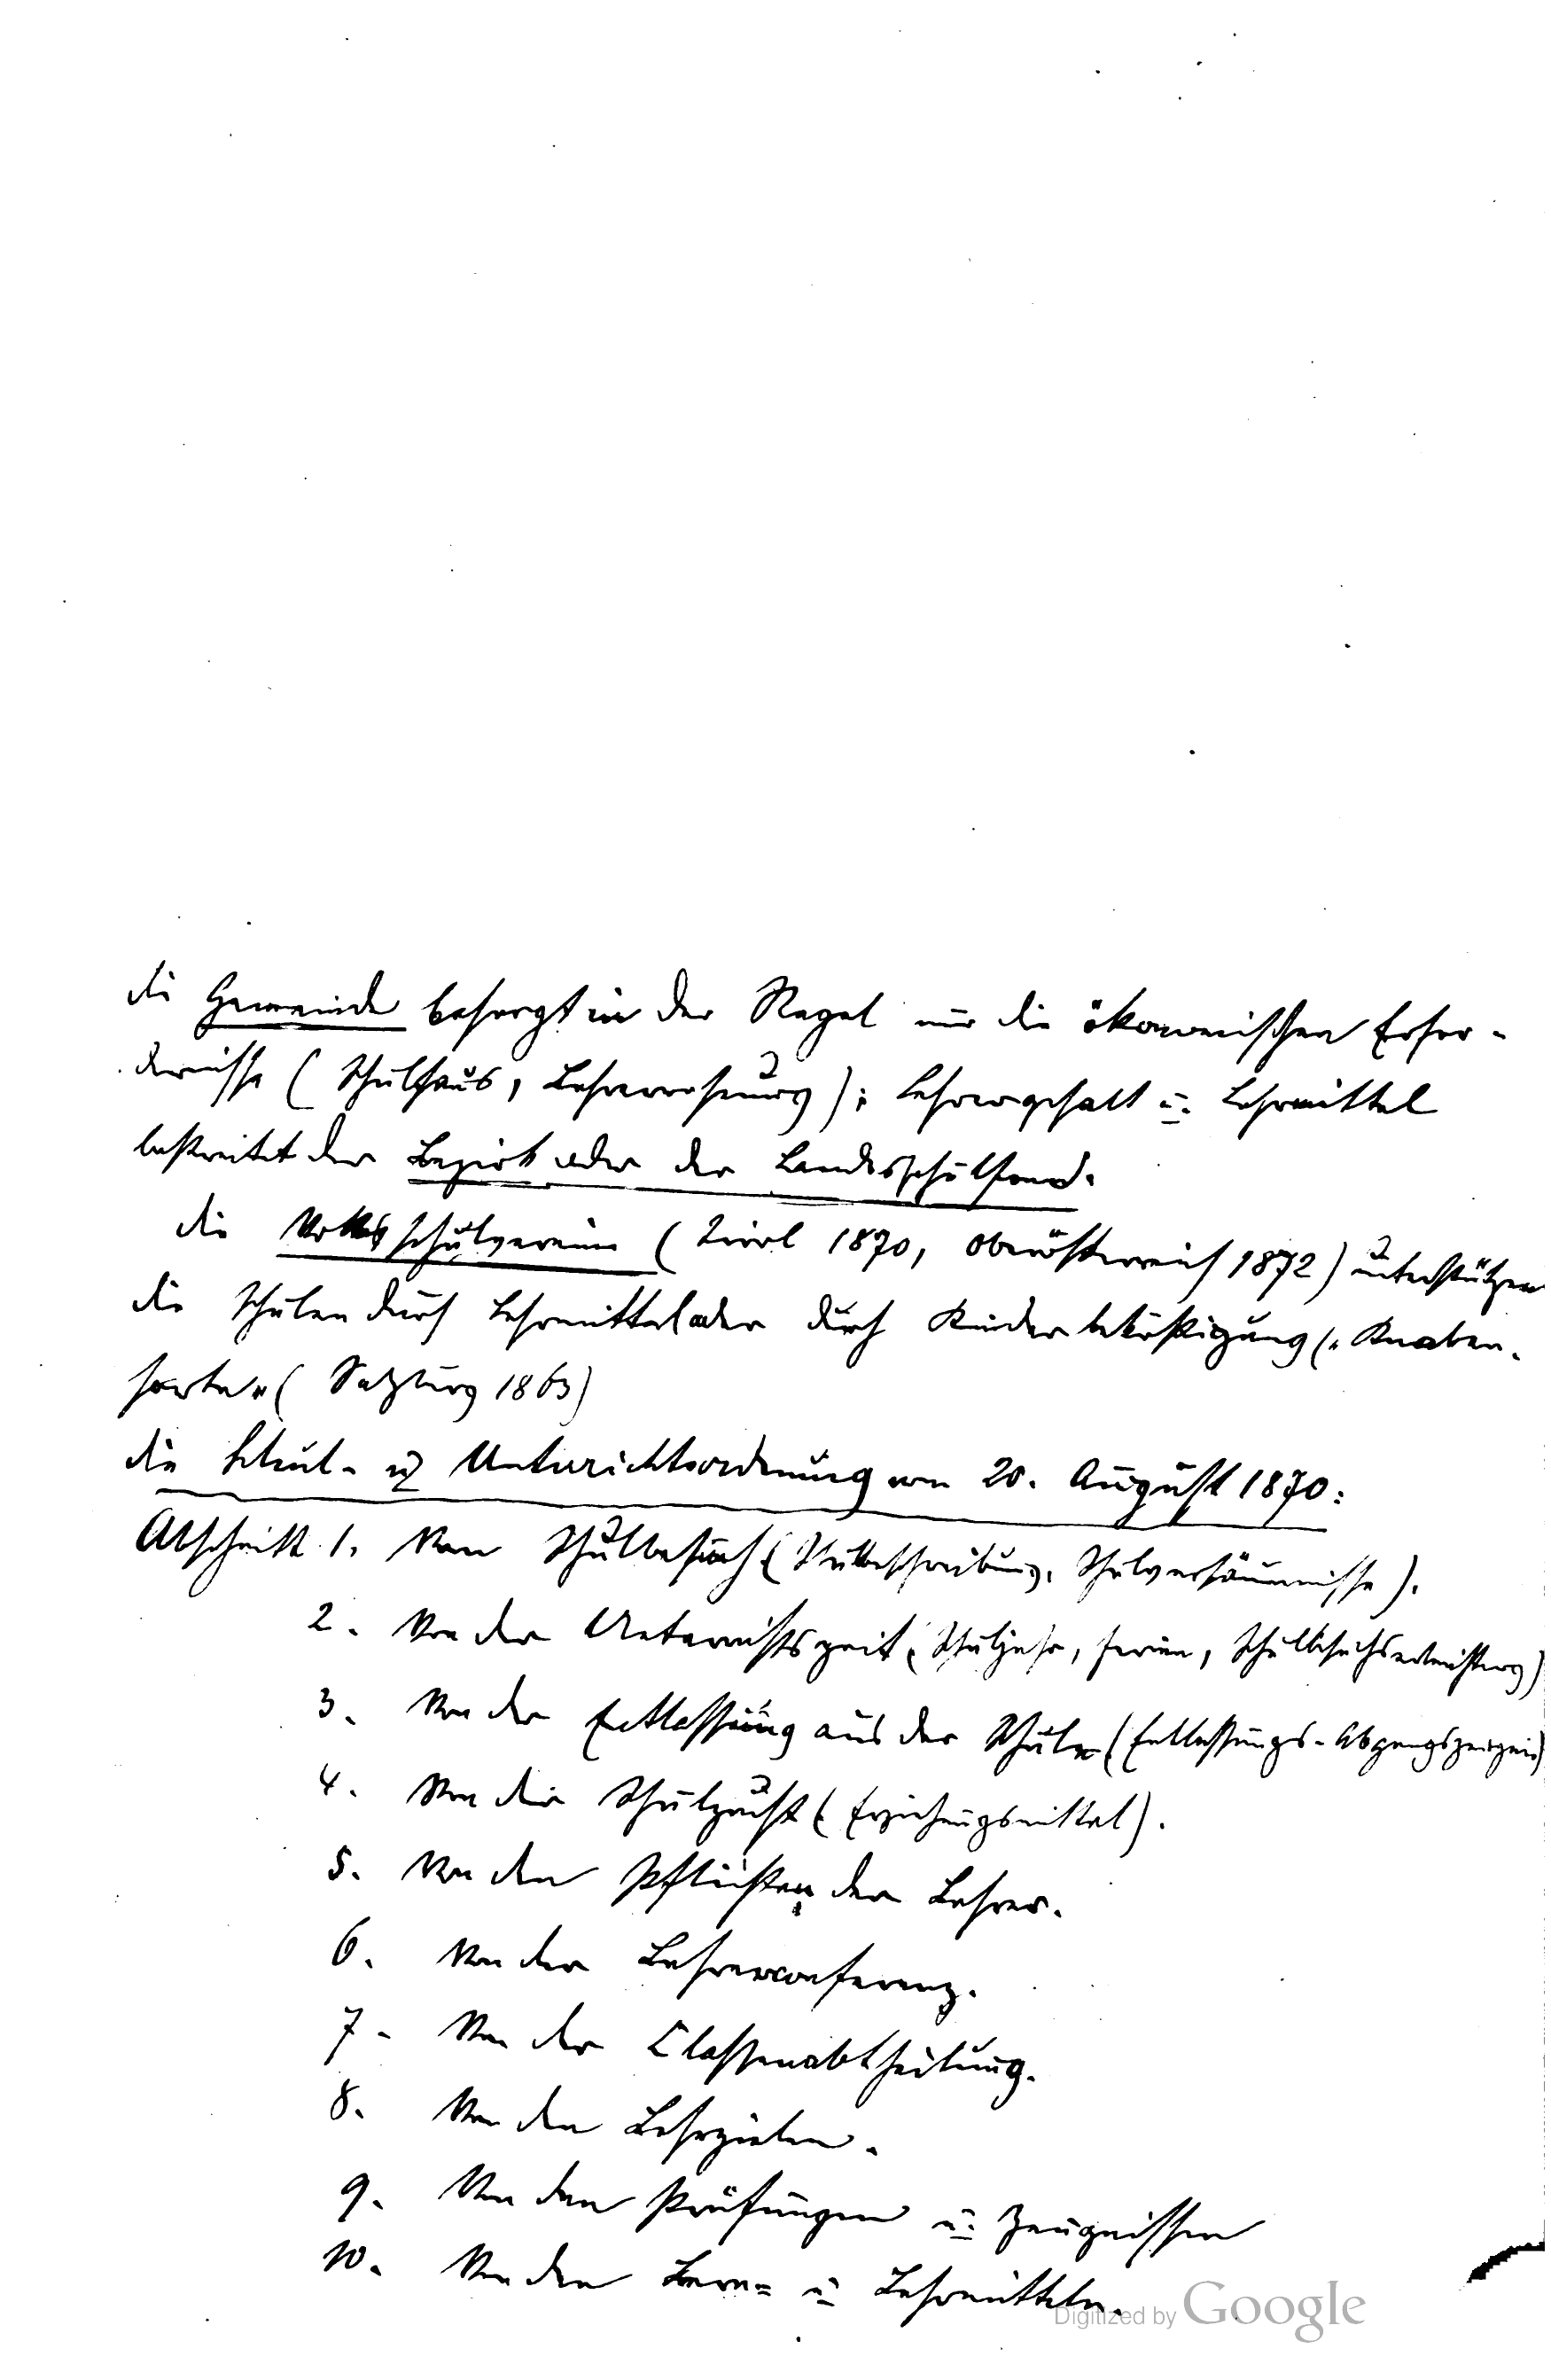 die Gemeinde besorgt in der Regel nur die ökonomischen Erfor-
dernisse (Schulhaus, Lehrerwohnung); Lehrergehalt u. Lehrmittel
bestreitet der Bezirk oder der Landesschulfond.
die Volksschulvereine (Tirol 1870, Oberösterreich 1872) unterstützen
die Schulen durch Lehrmittel oder durch Kinderbeköstigung („Knaben-
horte“ (Salzburg 1863)
die Schul- u. Unterrichtsordnung vom 20. August 1870:
Abschnitt 1. Vom Schulbesuch (Schulbeschreibung, Schulversäumnisse).
2. Von der Unterrichtszeit (Schuljahr, Ferien, )
3. Von der Entlassung aus der Schule (Entlassungs-Abgangszeugnis)
4. Von der Schulzucht (Erziehungsmittel).
5. Von den Pflichten der Lehrer.
6. Von der Lehrerconferenz.
7. Von der Classenabtheilung.
8. Von den Lehrzielen.
9. Von den Prüfungen u. Zeugnissen
10. Von den Lern= u. Lehrmitteln.
Digitized by Google